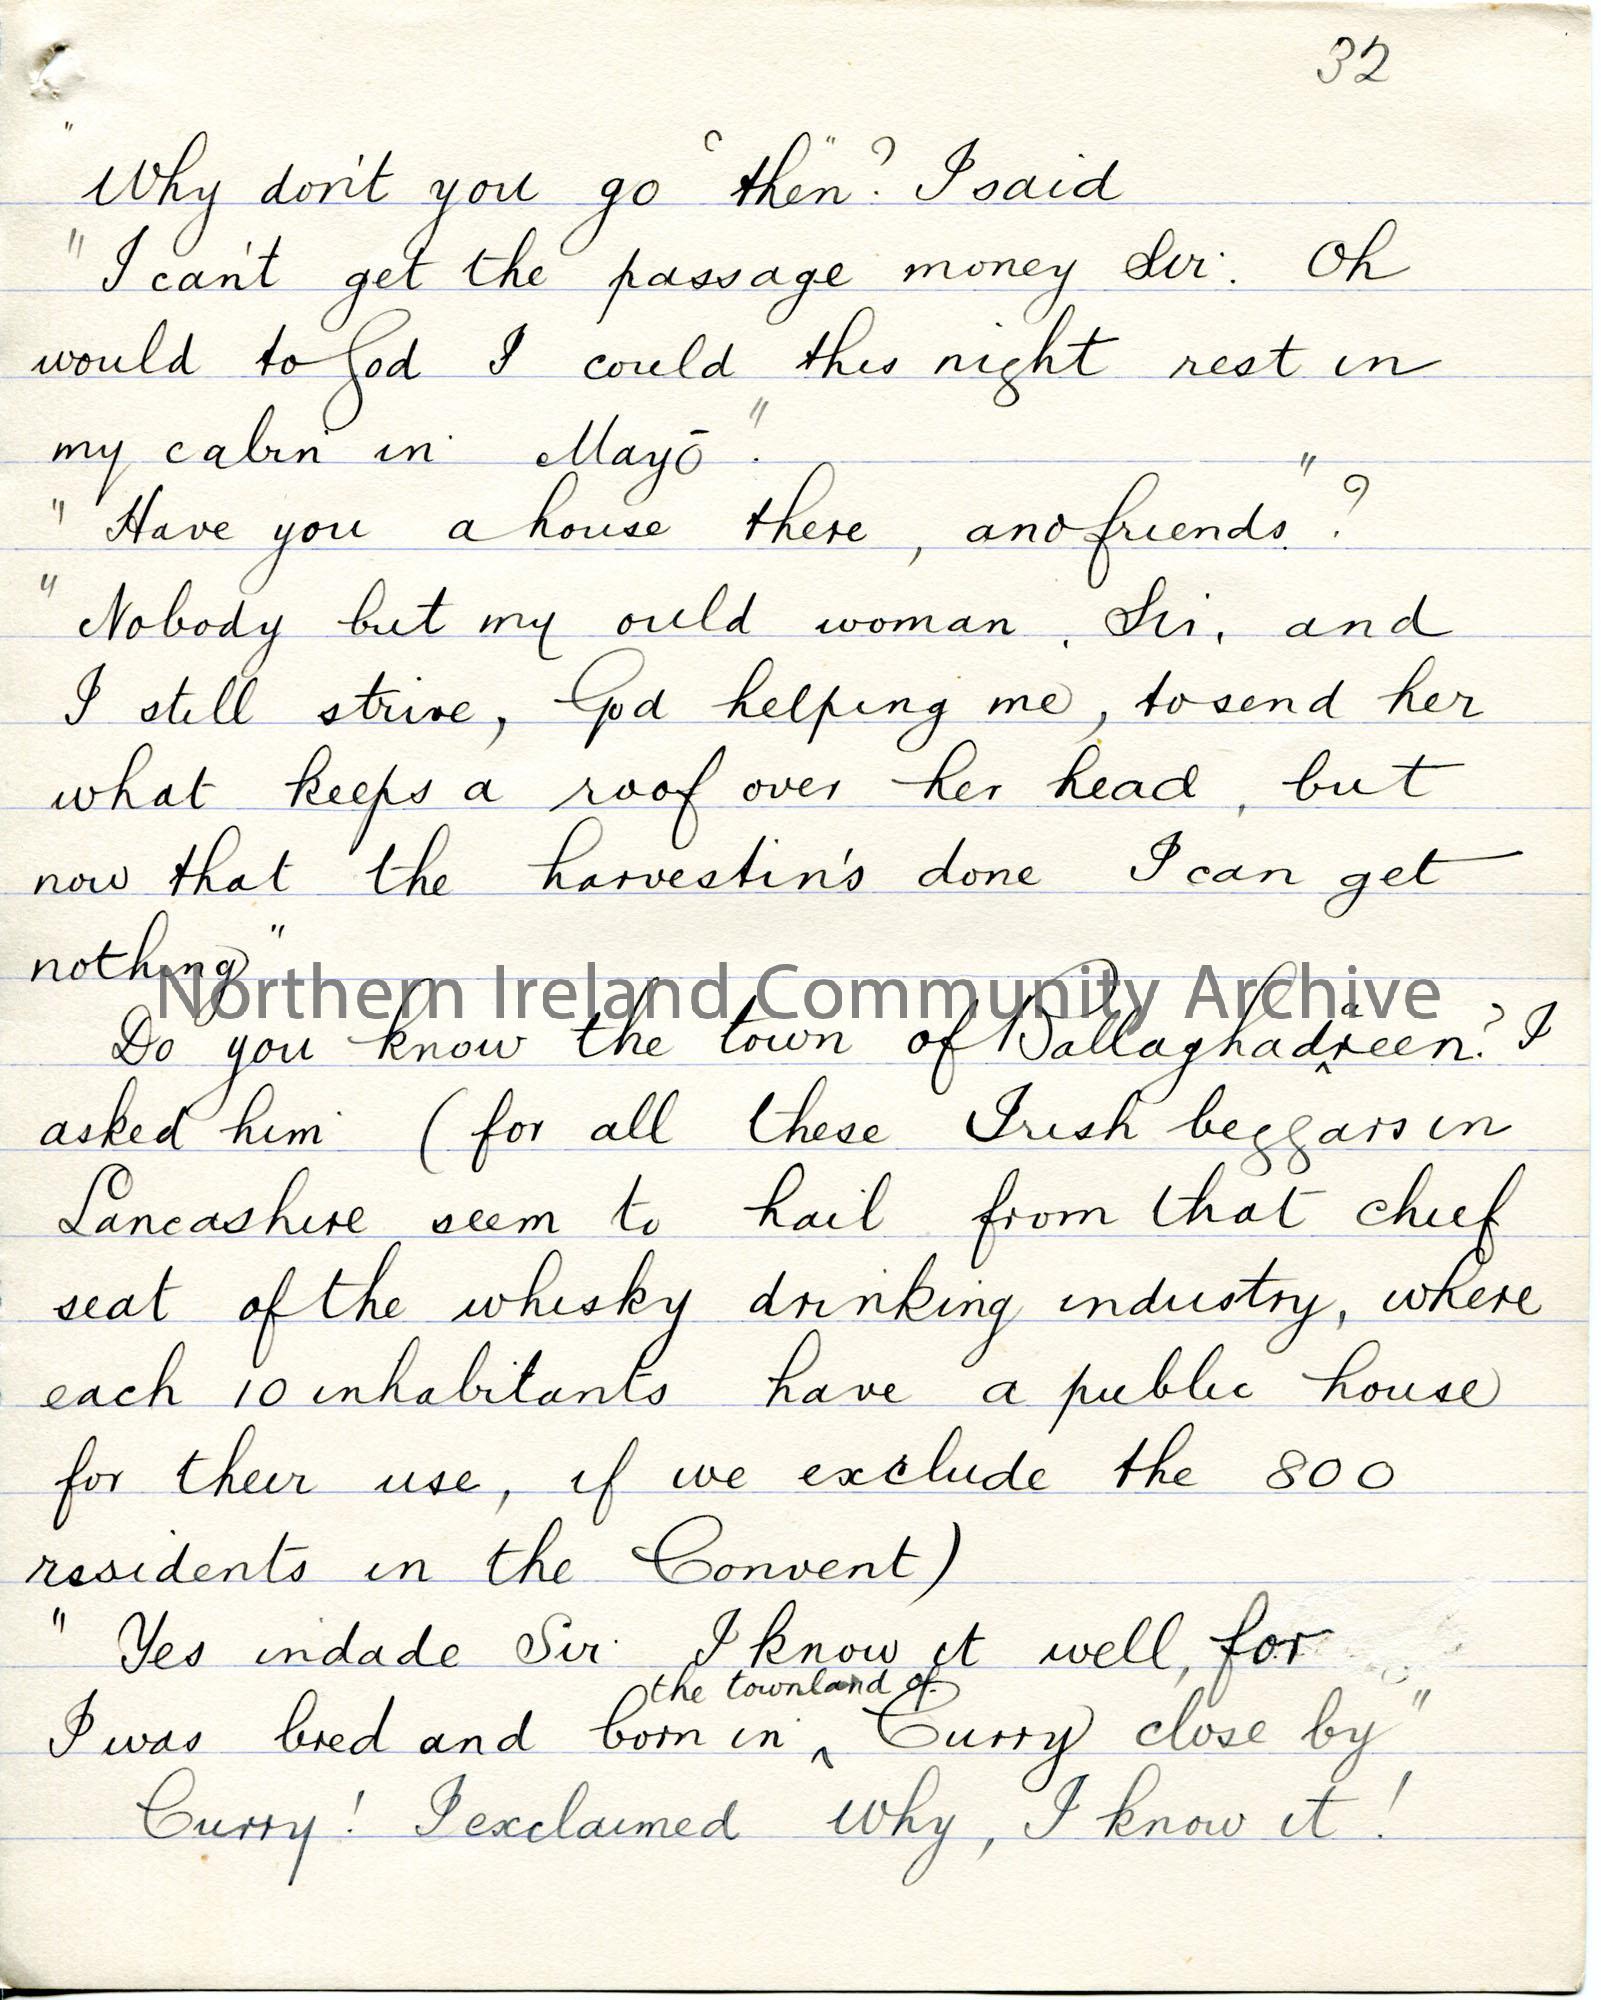 32
"Why don't you go "then"? I said
"I can't get the passage money Sir. Oh
would to God I could this night rest in
my cabin in Mayo".
"Have you a house there, and friends"?
"Nobody but my ould woman, Sir, and
I still strive, God helping me, to send her
what keeps a roof over her head, but
now that the harvestin's done I can get
nothing"
Northern Ireland Community Archive
Do you know the town of Ballaghadareen? I
asked him (for all these Irish beggars in
Lancashire seem to hail from that chief
seat of the whisky drinking industry, where
each 10 inhabitants have a public house
for their use, if we exclude the 800
residents in the Convent)
"Yes indade Sir I know it well, for
I was bred and born in the townland of Curry close by"
Curry! I exclaimed Why, I know it!